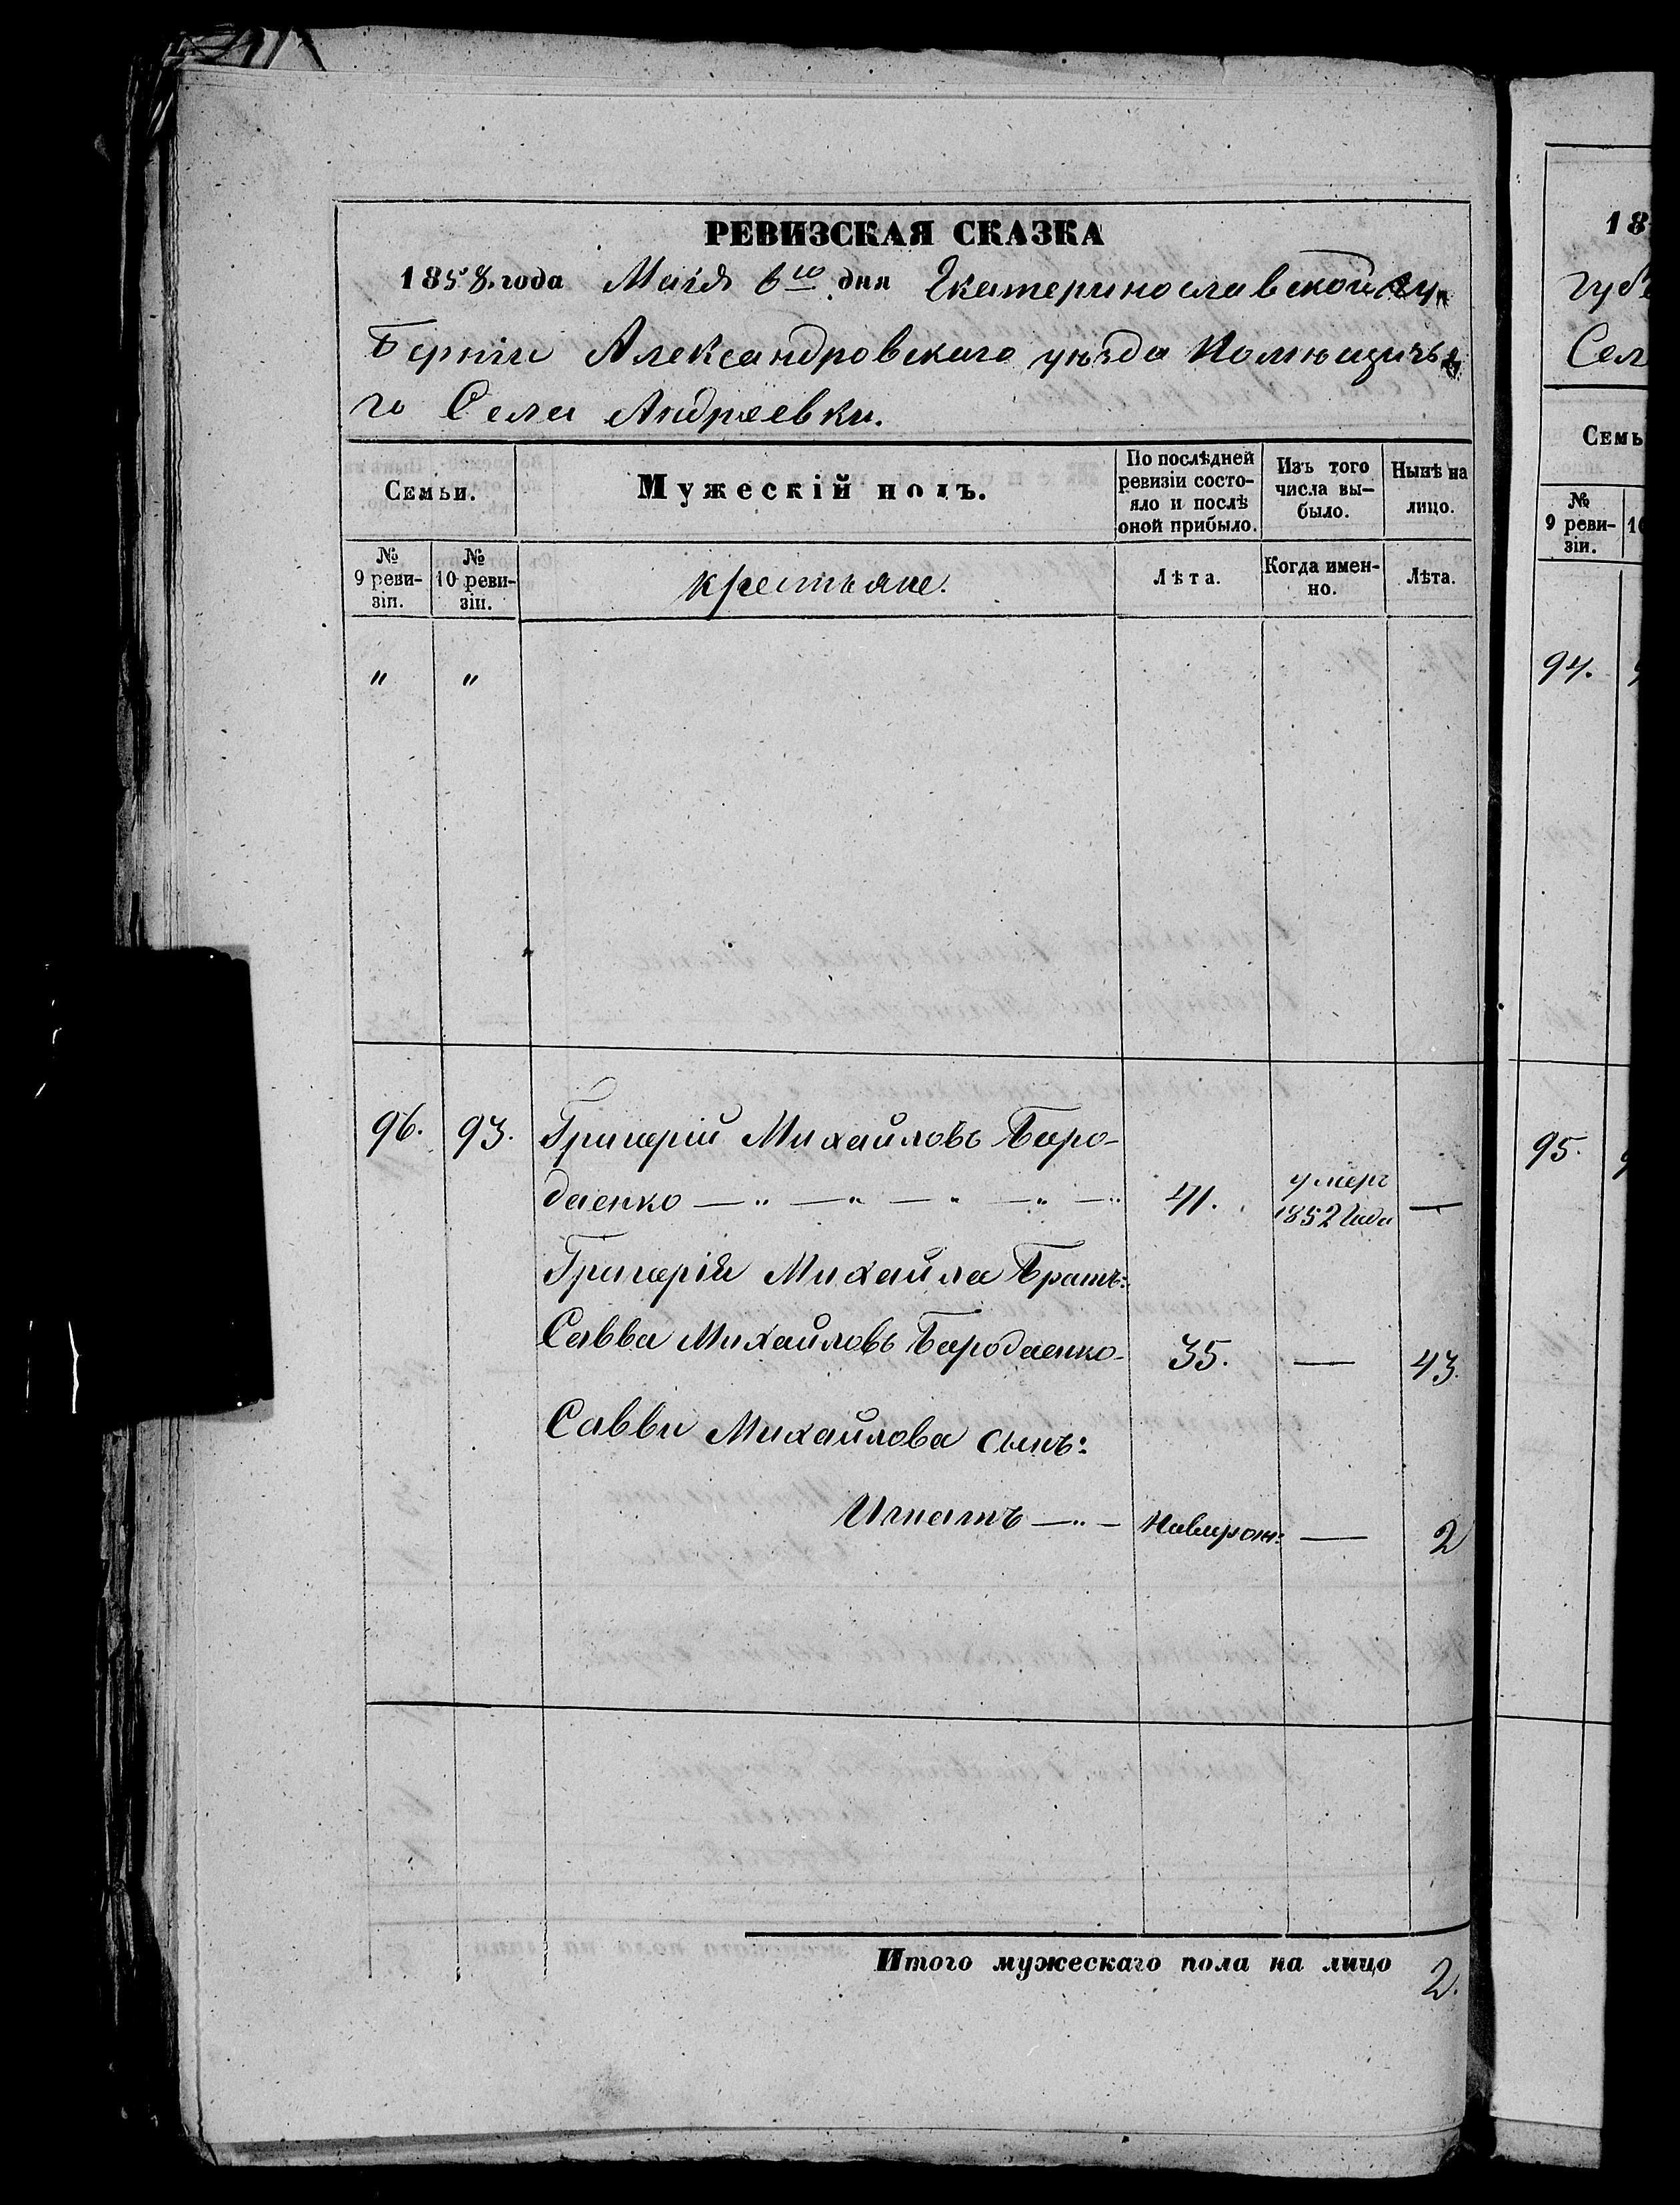 РЕВИЗСКАЯ СКАЗКА
1858. года Маія 6го дня Екатеринославской гу-
берніи Александровскаго уѣзда Помѣщичья-
го Села Андреевки.
Семьи.
Мужескій полъ.
По послѣдней ревизіи состо-яло и послѣ оной прибыло.
Изъ того числа вы-было.
Нынѣ на лицо.
№ 9 реви-зіи.
№ 10 реви-зіи.
крестьяне.
Лѣта.
Когда имен-но.
Лѣта.
" "
96. 93. Григорій Михайловъ Боро-
даенко — " — " — " — " — " 41. умеръ 1852 года —
Григорія Михайлова Братъ:
Савва Михайловъ Бородаенко- 35. — 43.
Саввы Михайлова сынъ:
Игнатъ — " — Новорож: — 2
Итого мужескаго пола на лицо 2.
18
губе
Сел
Семь
№ 9 реви-зіи.
94.
95.